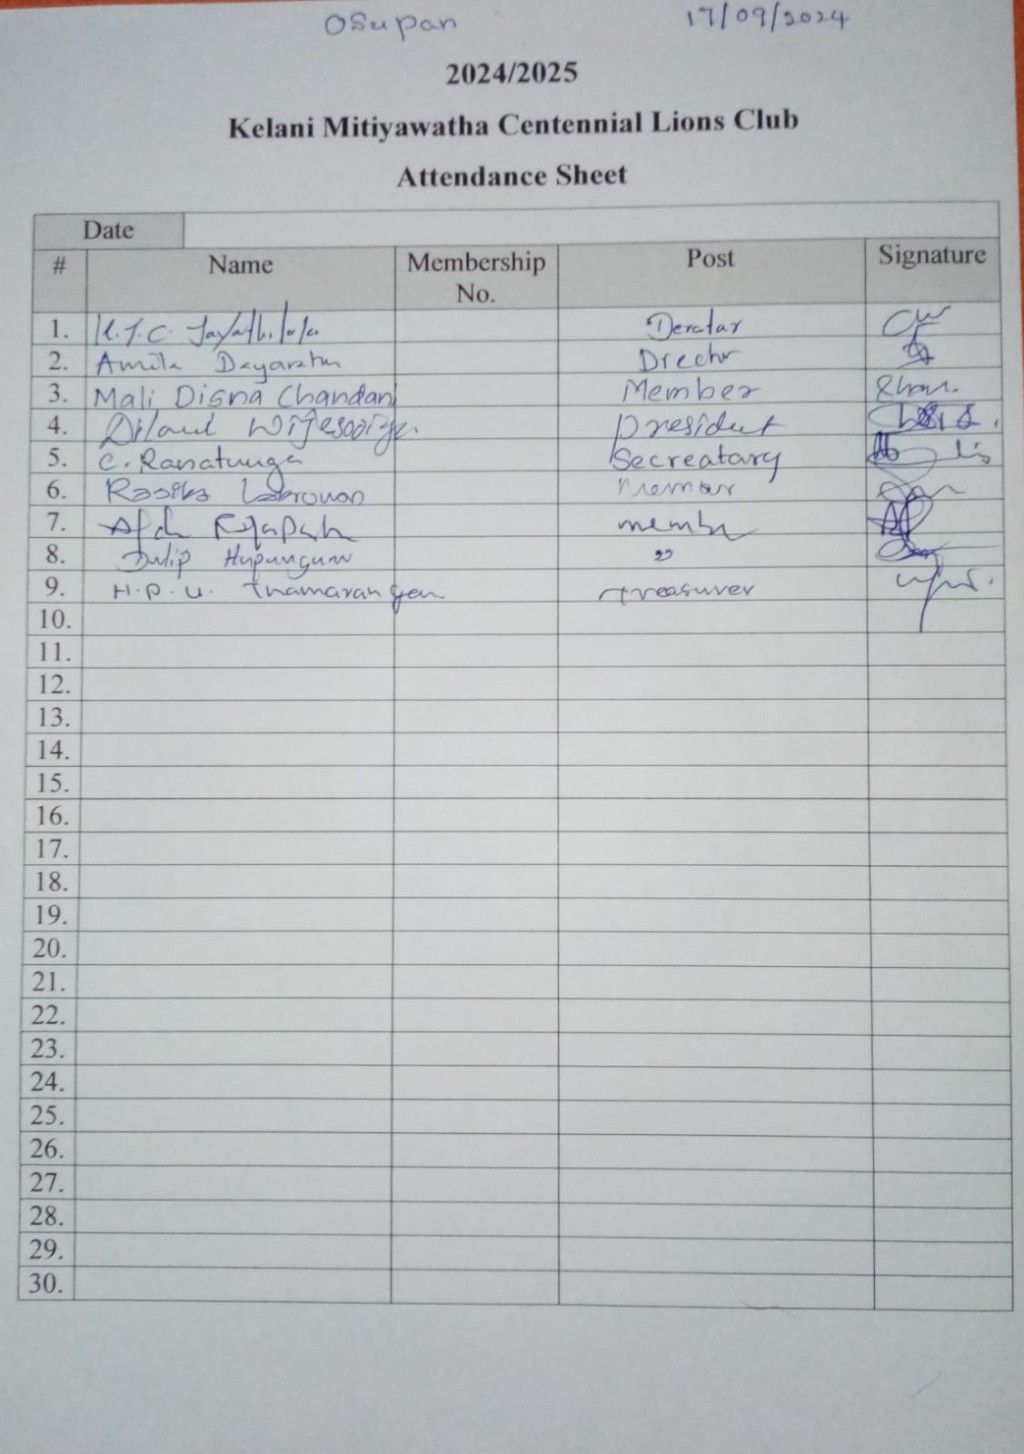 Osupan 17/09/2024
2024/2025
Kelani Mitiyawatha Centennial Lions Club
Attendance Sheet
Date
# Name Membership No. Post Signature
1. K.J.C. Deratar
2. Amila Dayarathn Drechr
3. Mali Disna Chandan Member
4. Wijesooriya president
5. C. Ranatunga Secreatary
6. Rasika
7. memb
8. Dulip "
9. H.P.U. Thamarangen treasurer
10.
11.
12.
13.
14.
15.
16.
17.
18.
19.
20.
21.
22.
23.
24.
25.
26.
27.
28.
29.
30.